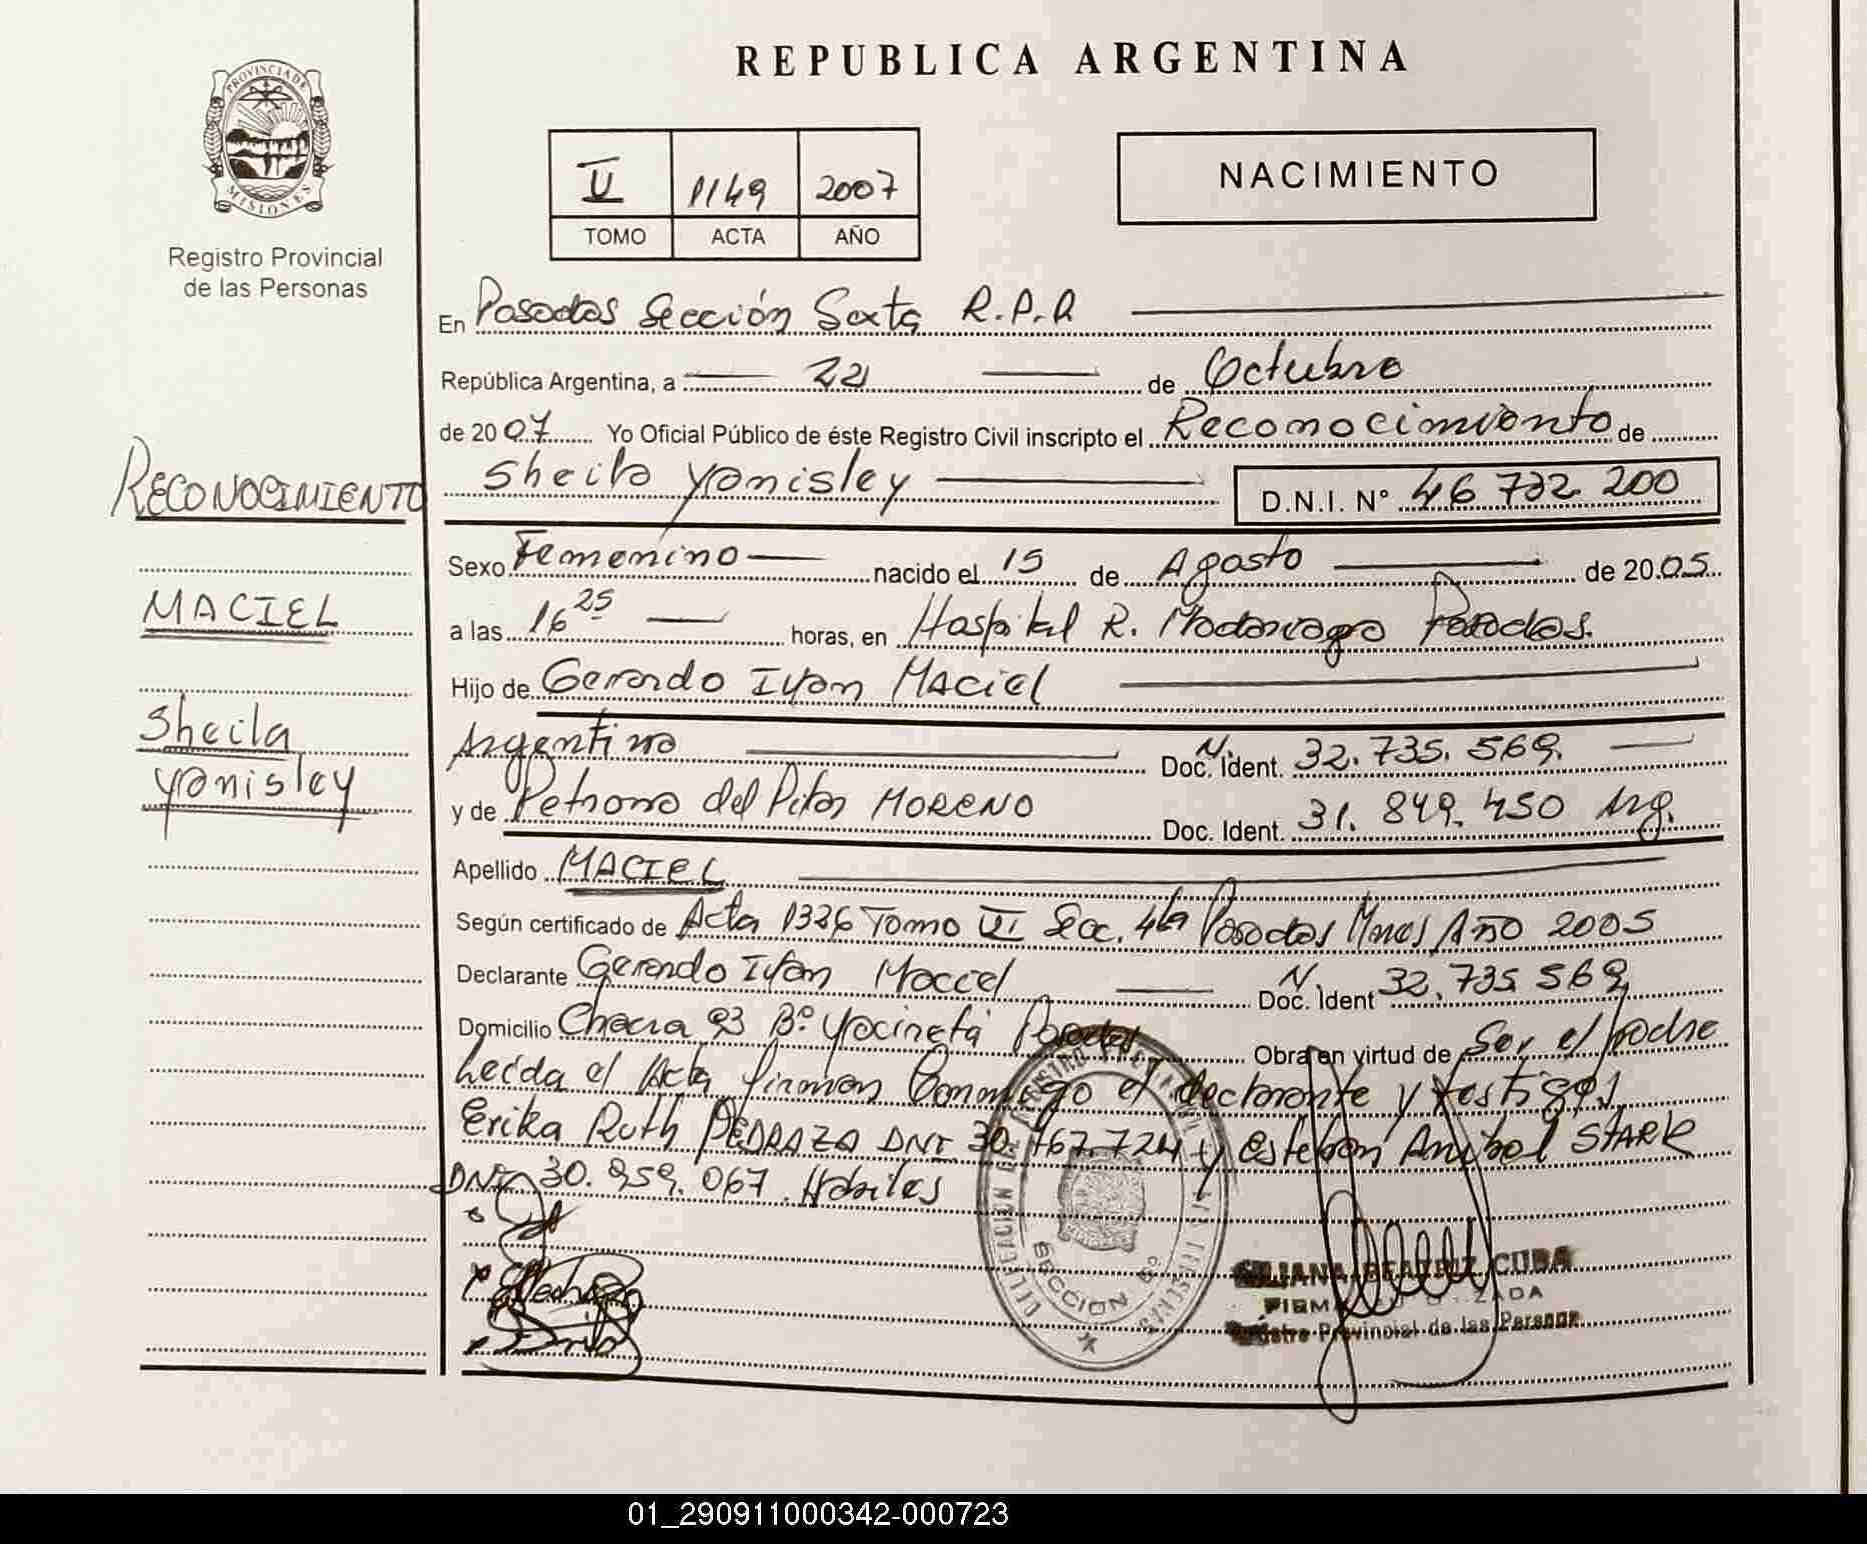 REPUBLICA ARGENTINA
PROVINCIA DE
MISIONES
Registro Provincial
de las Personas
II 1149 2007
TOMO ACTA AÑO
NACIMIENTO
En Posadas Sección Sexta R.P.
República Argentina, a 22 de Octubre
de 20 07 Yo Oficial Público de éste Registro Civil inscripto el Reconocimiento de
Sheila Yanisley D.N.I. N° 46 732 200
RECONOCIMIENTO
MACIEL
Sheila
Yanisley
Sexo Femenino nacido el 15 de Agosto de 20 05
a las 16 25 horas, en Hospital R. Madariaga Posadas.
Hijo de Gerardo Ivan Maciel
Argentino Doc. Ident. 32.735.569.
y de Petrona del Pilar MORENO Doc. Ident. 31.849.450 Arg.
Apellido MACIEL
Según certificado de Acta 1326 Tomo VI Secc. 4ta Posadas Mnes Año 2005
Declarante Gerardo Ivan Maciel Doc. Ident 32.735.569
Domicilio Chacra 93 B° Yacireta Posadas Obra en virtud de Ser el padre
Leída el Acta firman Conmigo el declarante y testigos
Erika Ruth PEDRAZA DNI 30.767.724 y Esteban Anibal STARK
DNI 30.959.067. Habiles
SECCION 6°
BEATRIZ CUBA
Provincial de las Personas
01_290911000342-000723